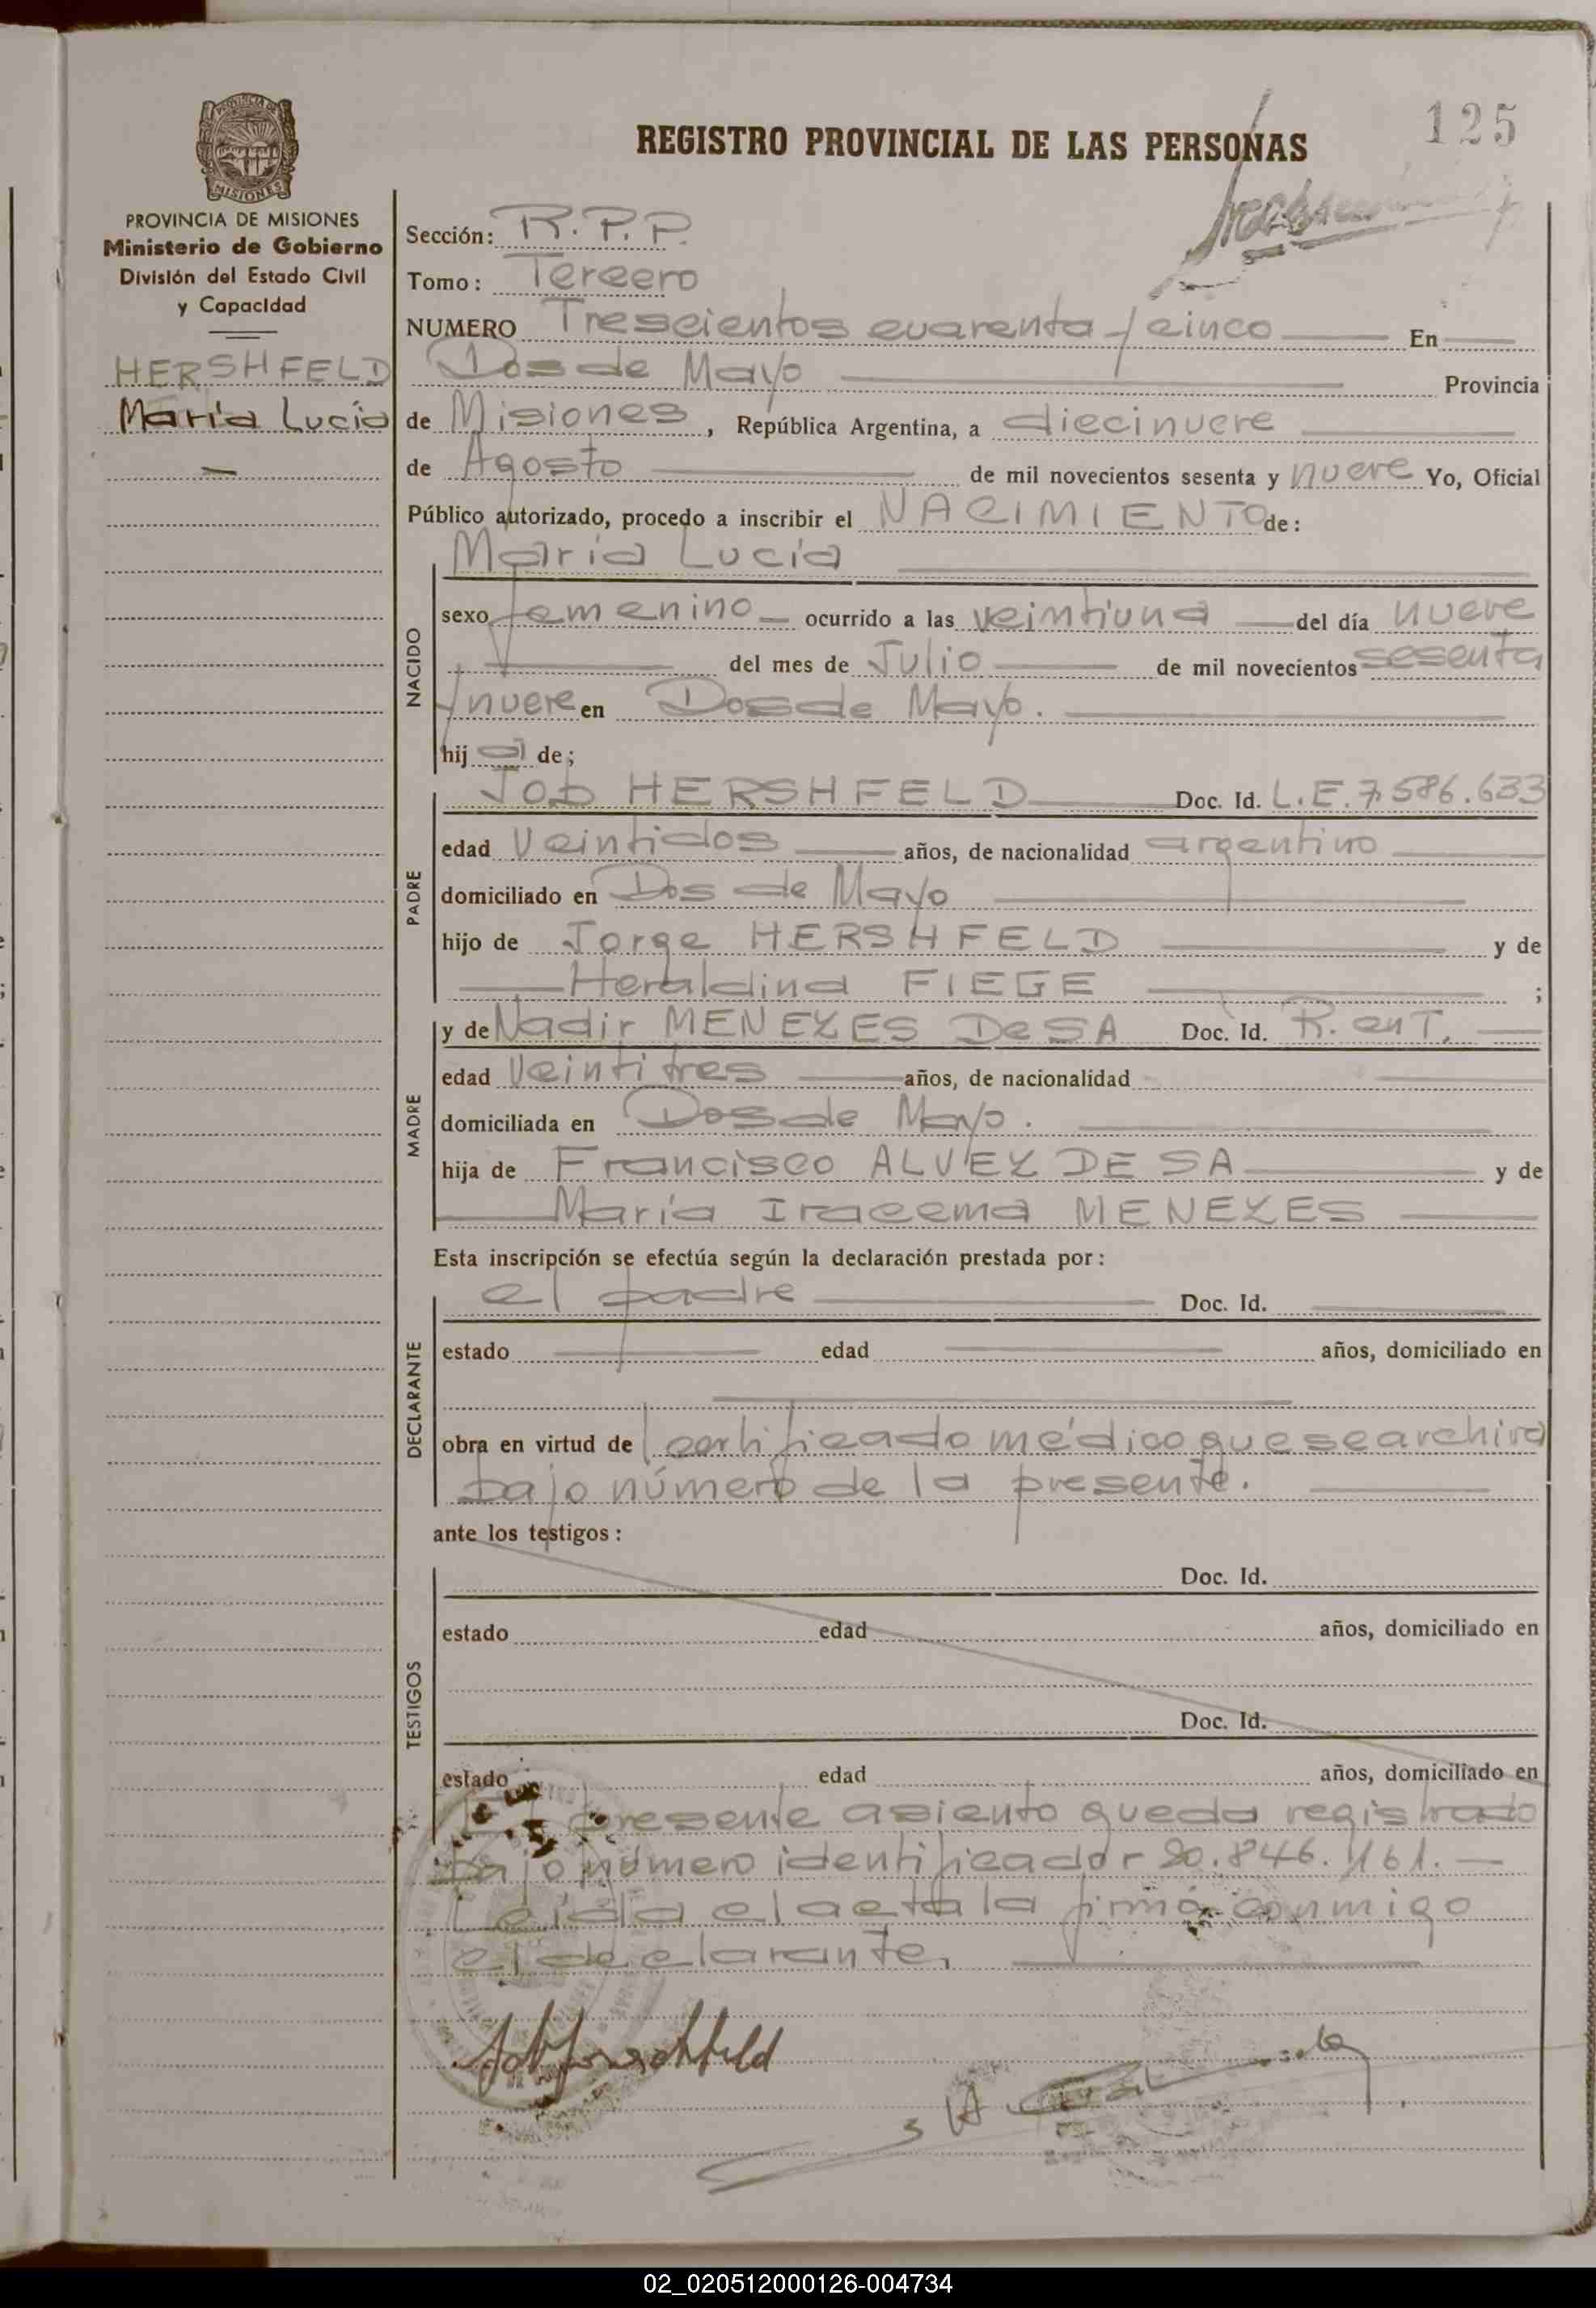 125
REGISTRO PROVINCIAL DE LAS PERSONAS
PROVINCIA DE MISIONES
Ministerio de Gobierno
División del Estado Civil
y Capacidad
HERSHFELD
María Lucía
Sección: R.P.P.
Tomo: Tercero
NUMERO Trescientos cuarenta y cinco En
Dos de Mayo Provincia
de Misiones, República Argentina, a diecinueve
de Agosto de mil novecientos sesenta y nueve Yo, Oficial
Público autorizado, procedo a inscribir el NACIMIENTO de:
María Lucía
NACIDO
sexo femenino ocurrido a las veintiuna del día nueve
del mes de Julio de mil novecientos sesenta
y nueve en Dos de Mayo.
hij a de;
PADRE
Job HERSHFELD Doc. Id. L.E. 7.586.633
edad veintidos años, de nacionalidad argentino
domiciliado en Dos de Mayo
hijo de Jorge HERSHFELD y de
Heraldina FIEGE ;
MADRE
y de Nadir MENEZES De SA Doc. Id. R. en T.
edad veintitres años, de nacionalidad
domiciliada en Dos de Mayo.
hija de Francisco ALVEZ DE SA y de
María Iracema MENEZES
Esta inscripción se efectúa según la declaración prestada por:
DECLARANTE
el padre Doc. Id.
estado edad años, domiciliado en
obra en virtud de certificado médico que se archiva
bajo número de la presente.
ante los testigos:
TESTIGOS
Doc. Id.
estado edad años, domiciliado en
Doc. Id.
estado edad años, domiciliado en
El presente asiento queda registrado
bajo número identificador 20.846.161.—
Leída el acta la firmó conmigo
el declarante.
02_020512000126-004734